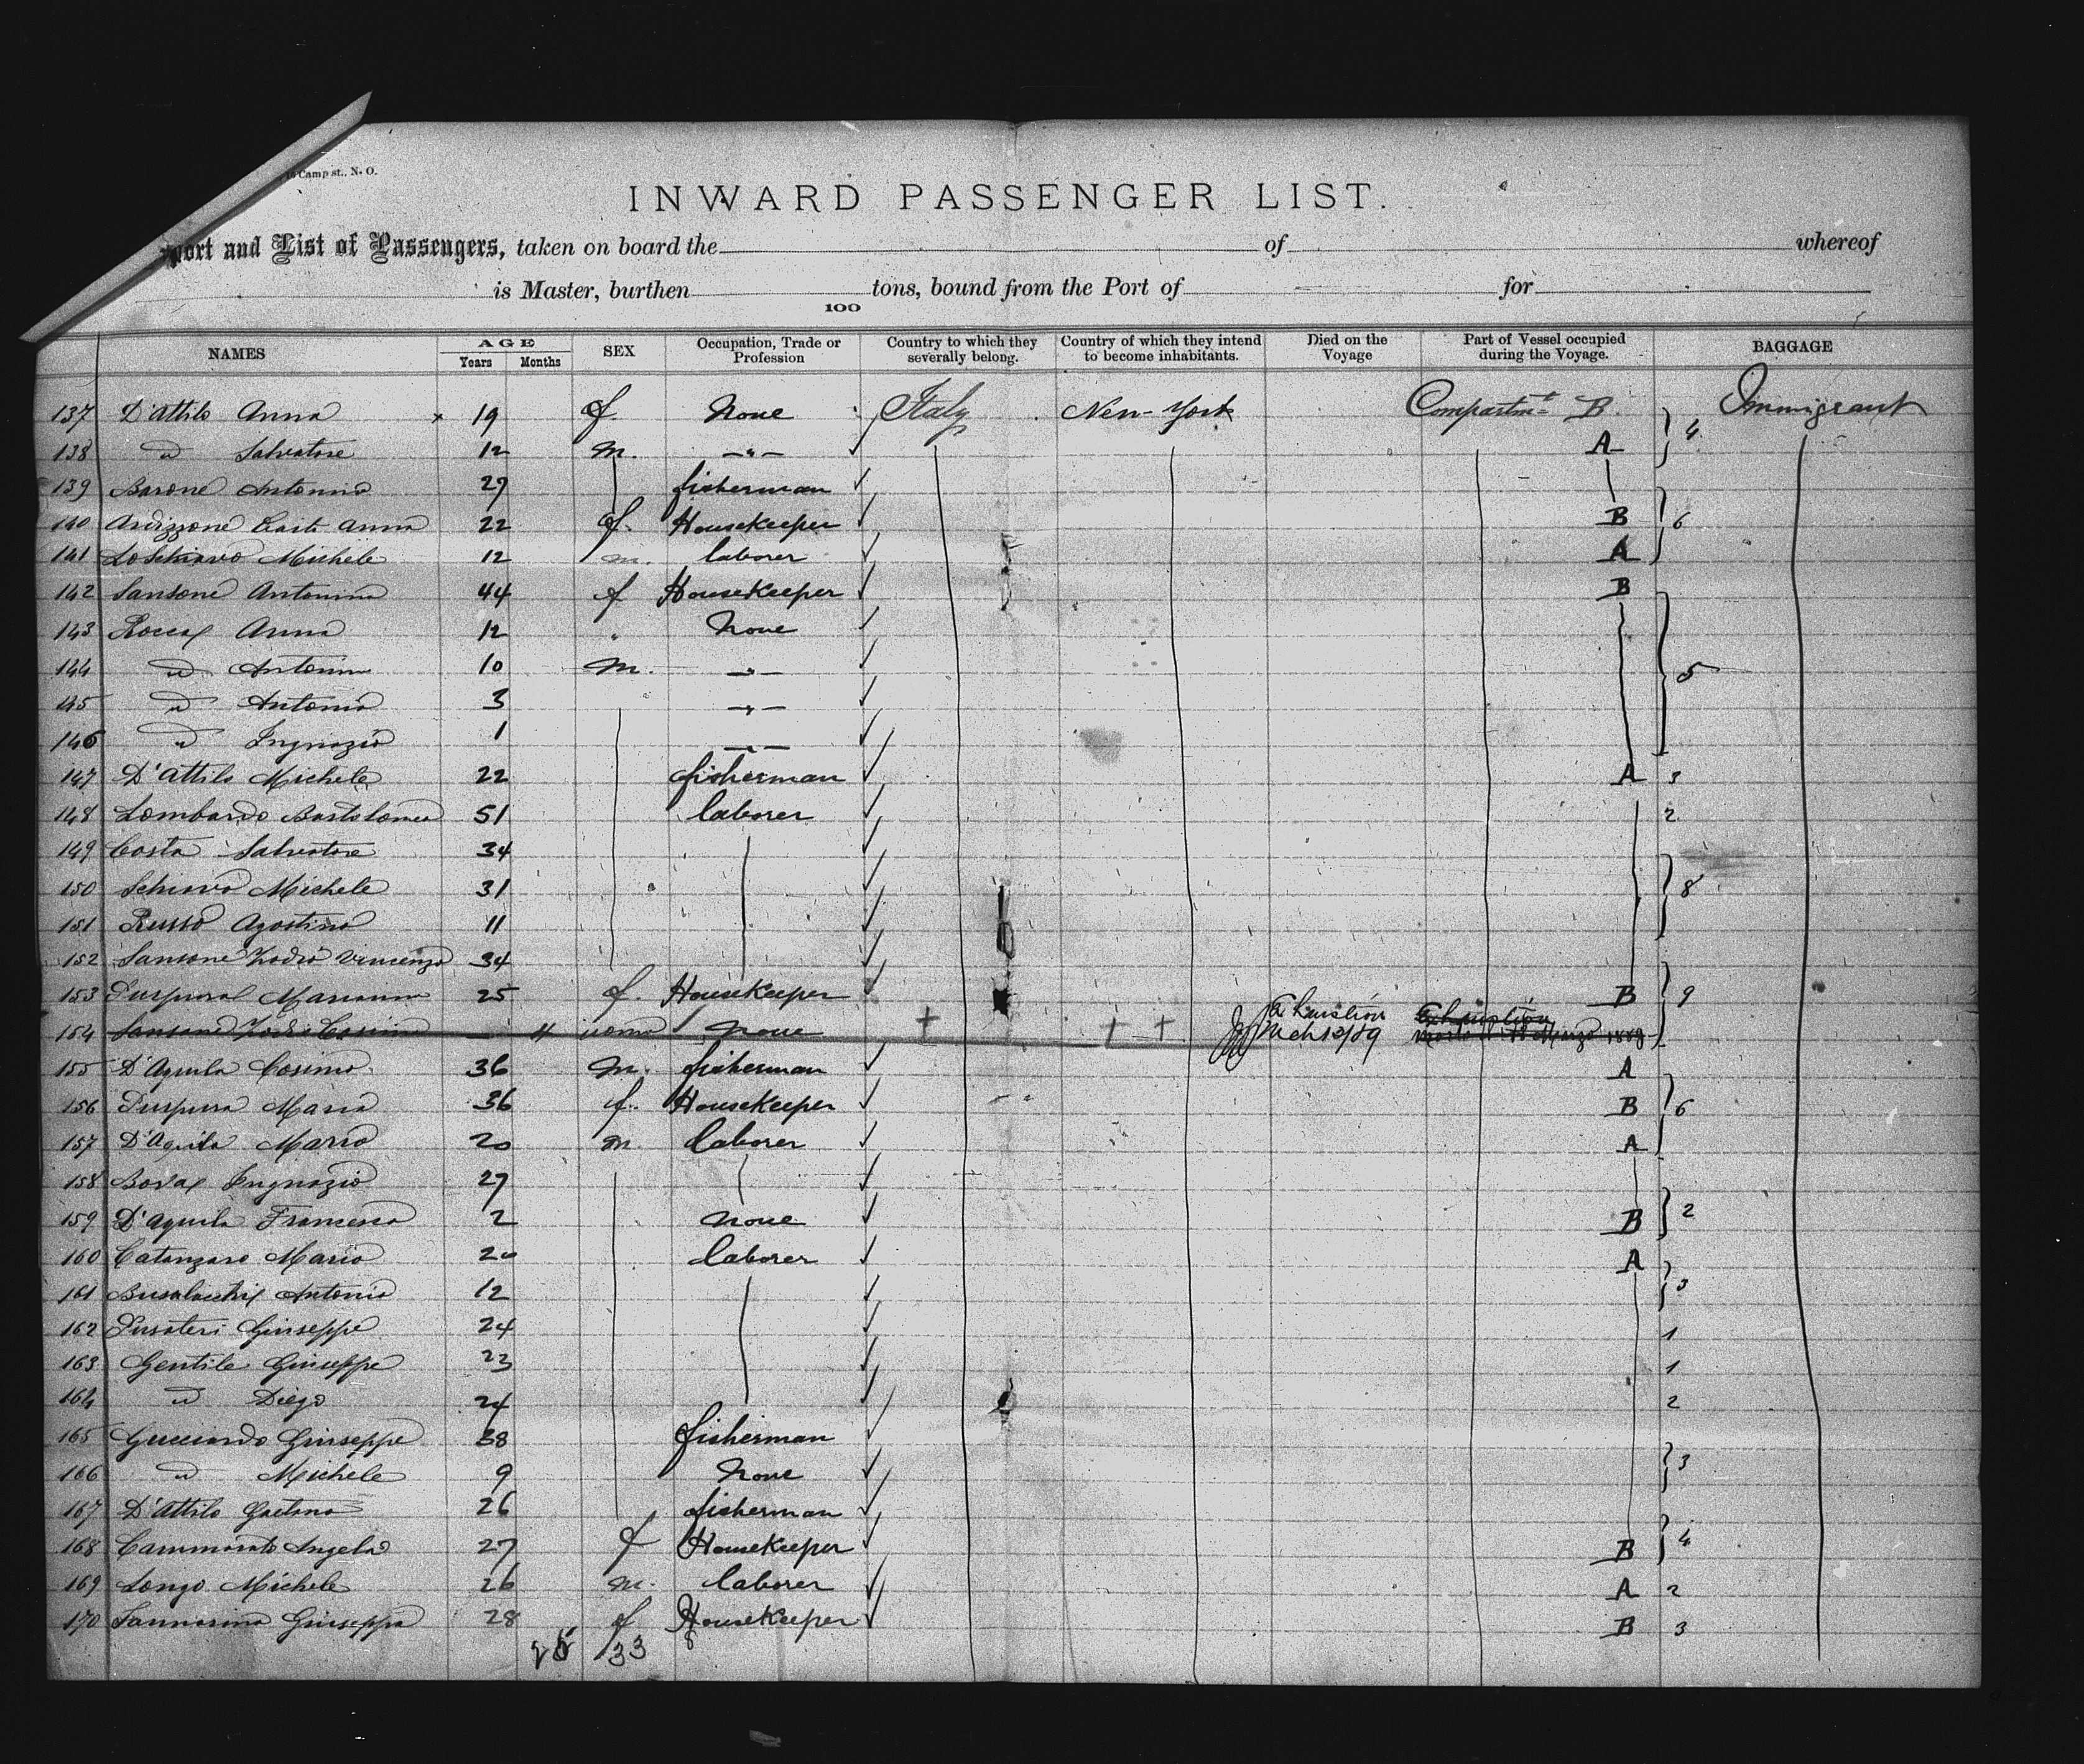 Camp st., N. O.
INWARD PASSENGER LIST.
port and List of Passengers, taken on board the of whereof
is Master, burthen tons, bound from the Port of for
100
NAMES AGE Years Months SEX Occupation, Trade or Profession Country to which they severally belong. Country of which they intend to become inhabitants. Died on the Voyage Part of Vessel occupied during the Voyage. BAGGAGE
137 D'Attilo Anna × 19 f. None Italy New-York Compartmt B. 4 Immigrant
138 id Salvatore 12 m. -"- A
139 Barone Antonino 27 fisherman
140 Anna 22 f. Housekeeper B 6
141 LoSchiavo Michele 12 m. laborer A
142 Sansone Antonina 44 f Housekeeper B
143 Anna 12 " None
144 id Antonin 10 m. -"- 5
145 id Antonio 3 -"-
146 id Ingnazio 1 -"-
147 D'Attilo Michele 22 fisherman A 3
148 Lombardo Bartolomeo 51 laborer 2
149 Costa Salvatore 34
150 Schiavo Michele 31 8
151 Russo Agostino 11
152 Sansone Vincenzo 34
153 Marianna 25 f. Housekeeper B 9
154 Sansone Cosimo 11 uomo None + + + Exhaustion Mch 12/89 Exhaustion Marzo 1889
155 D'Aquila Cosimo 36 m. fisherman A
156 Purpura Maria 36 f. Housekeeper B 6
157 D'Aquila Mario 20 m. laborer A
158 Ingnazio 27
159 D'Aquila Francesco 2 None B 2
160 Catanzaro Mario 20 laborer A
161 Busalacchi Antonio 12 3
162 Pusateri Giuseppe 24 1
163 Gentile Giuseppe 23 1
164 id Diego 24 2
165 Gucciardo Giuseppe 38 fisherman
166 id Michele 9 None 3
167 D'Attilo Gaetano 26 fisherman
168 Cammarata Angela 27 f Housekeeper B 4
169 Longo Michele 26 m. laborer A 2
170 Giuseppa 28 f Housekeeper B 3
33 8